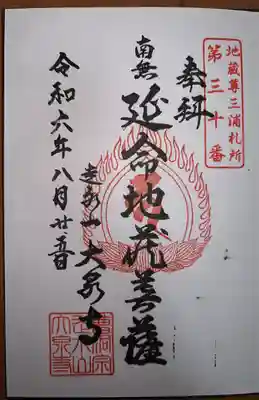 地蔵尊三浦札所
第三十番
奉拜
南無
延命地蔵菩薩
走水山 大泉寺
令和六年八月廿五日
曹洞宗
走水山
大泉寺